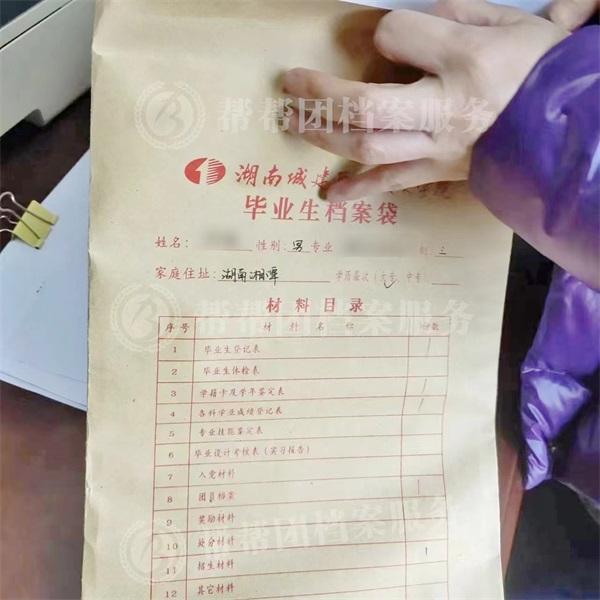 帮帮团档案服务
湖南城建
毕业生档案袋
姓名: 性别: 男 专业
家庭住址: 湖南湘潭 学历层次(大专、中专)
材料目录
帮帮团档案服务
序号 材料名称 份数
1 毕业生登记表 1
2 毕业生体检表
3 学籍卡及学年鉴定表 1
4 各科学业成绩登记表 1
5 专业技能鉴定表
6 毕业设计考核表(实习报告)
7 入党材料
8 团员档案 1
9 奖励材料
帮帮团档案服务
10 处分材料
11 招生材料 1
12 其它材料